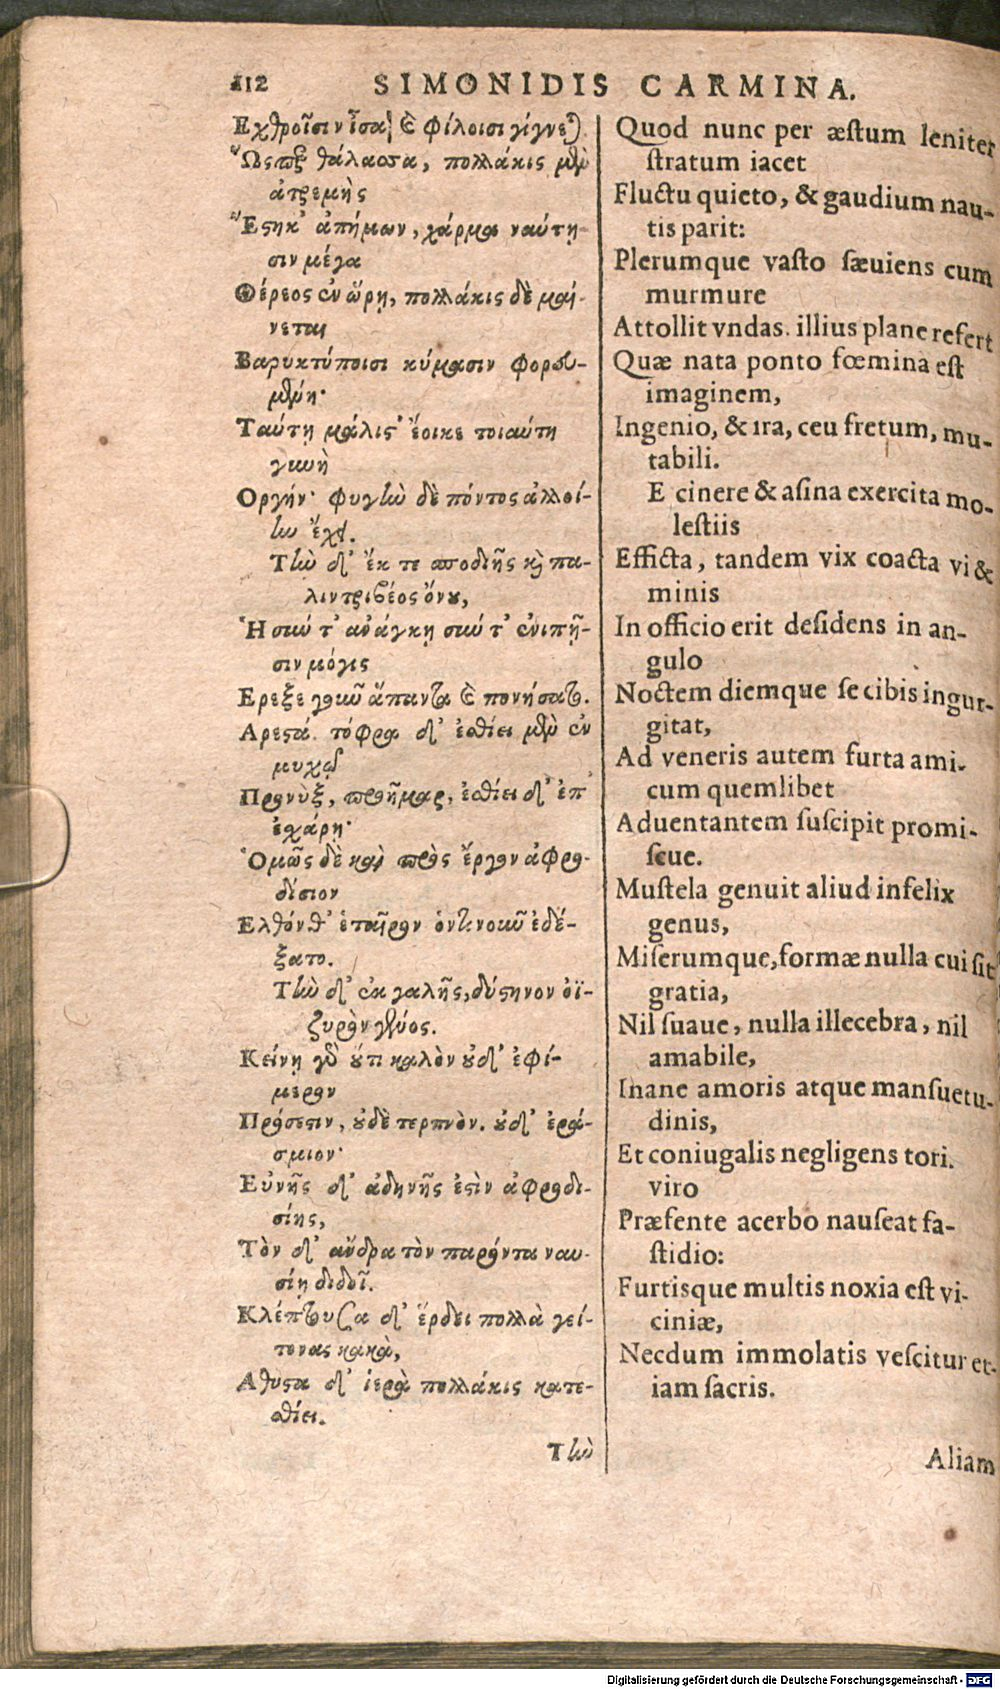 112 SIMONIDIS CARMINA.
Ἐχθροῖσιν ἶσα καὶ φίλοισι γίγνεται.
Ὥσπερ θάλασσα, πολλάκις μὲν
ἀτρεμὴς
Ἕστηκ' ἀπήμων, χάρμα ναύτῃ-
σιν μέγα
Θέρεος ἐν ὥρῃ, πολλάκις δὲ μαί-
νεται
Βαρυκτύποισι κύμασιν φορου-
μένη·
Ταύτῃ μάλιστ' ἔοικε τοιαύτη
γυνὴ
Ὀργήν· φυὴν δὲ πόντος ἀλλοί-
ην ἔχει.
Τὴν δ' ἔκ τε σποδιῆς καὶ πα-
λιντριβέος ὄνου,
Ἣ σὺν τ' ἀνάγκῃ σὺν τ' ἐνιπῇ-
σιν μόγις
Ερεξε γοῦν ἅπαντα καὶ πονήσατο.
Αρεστά. τόφρα δ' ἐσθίει μὲν ἐν
μυχῷ
Προνὺξ, προῆμαρ, ἐσθίει δ' ἐπ'
ἐχάρῃ·
Ὁμῶς δὲ καὶ πρὸς ἔργον ἀφρο-
δίσιον
Ελθόνθ' ἑταῖρον ὁντινοῦν ἐδέ-
ξατο.
Τὴν δ' ἐκ γαλῆς, δύστηνον ὀϊ-
ζυρὸν γένος.
Κείνῃ γὰρ οὔτι καλὸν οὐδ' ἐφί-
μερον
Πρόσεστιν, οὐδὲ τερπνὸν. οὐδ' ἐρά-
σμιον·
Εὐνῆς δ' ἀδηνής ἐστὶν ἀφροδι-
σίης,
Τὸν δ' ἄνδρα τὸν παρόντα ναυ-
σίῃ διδοῖ.
Κλέπτουσα δ' ἔρδει πολλὰ γεί-
τονας κακὰ,
Αθυστα δ' ἱερὰ πολλάκις κατε-
σθίει.
Τὴν
Quod nunc per æstum leniter
stratum iacet
Fluctu quieto, & gaudium nau-
tis parit:
Plerumque vasto sæuiens cum
murmure
Attollit vndas. illius plane refert
Quæ nata ponto fœmina est
imaginem,
Ingenio, & ira, ceu fretum, mu-
tabili.
E cinere & asina exercita mo-
lestiis
Efficta, tandem vix coacta vi &
minis
In officio erit desidens in an-
gulo
Noctem diemque se cibis ingur-
gitat,
Ad veneris autem furta ami-
cum quemlibet
Aduentantem suscipit promi-
scue.
Mustela genuit aliud infelix
genus,
Miserumque, formæ nulla cui sit
gratia,
Nil suaue, nulla illecebra, nil
amabile,
Inane amoris atque mansuetu-
dinis,
Et coniugalis negligens tori.
viro
Præsente acerbo nauseat fa-
stidio:
Furtisque multis noxia est vi-
ciniæ,
Necdum immolatis vescitur et-
iam sacris.
Aliam
Digitalisierung gefördert durch die Deutsche Forschungsgemeinschaft - DFG